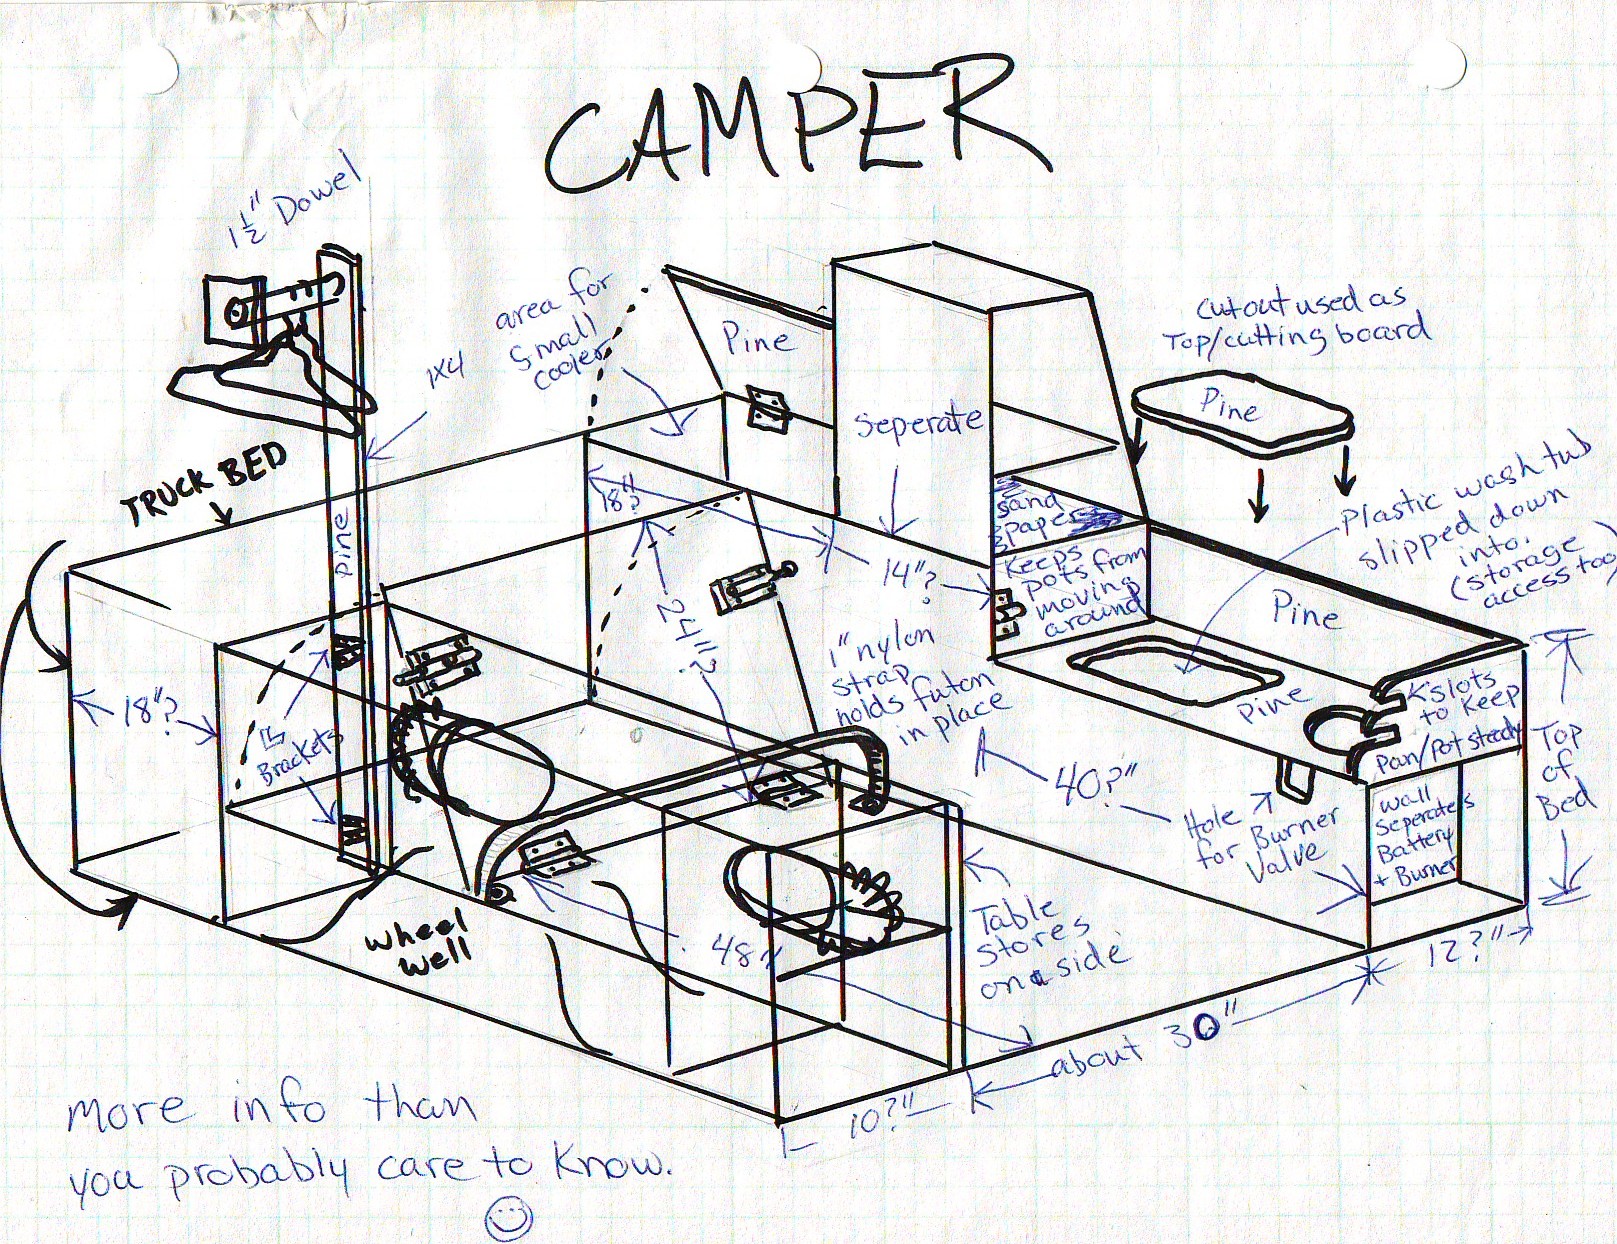 CAMPER
1½" Dowel
1x4
area for
small
cooler
Pine
Seperate
cutout used as
Top/cutting board
Pine
TRUCK BED
Pine
18"?
sand
paper
Keeps
pots from
moving
around
Plastic wash tub
slipped down
into.
(storage
access too)
14"?
24"?
18"?
Brackets
1" nylon
strap
holds futon
in place
Pine
Pine
K'slots
to keep
pan/pot steady
Top
of
Bed
40?"
Hole
for Burner
Valve
wall
Seperates
Battery
+ Burner
wheel
well
48"
Table
stores
on side
12?"
about 30"
10?"
more info than
you probably care to know.